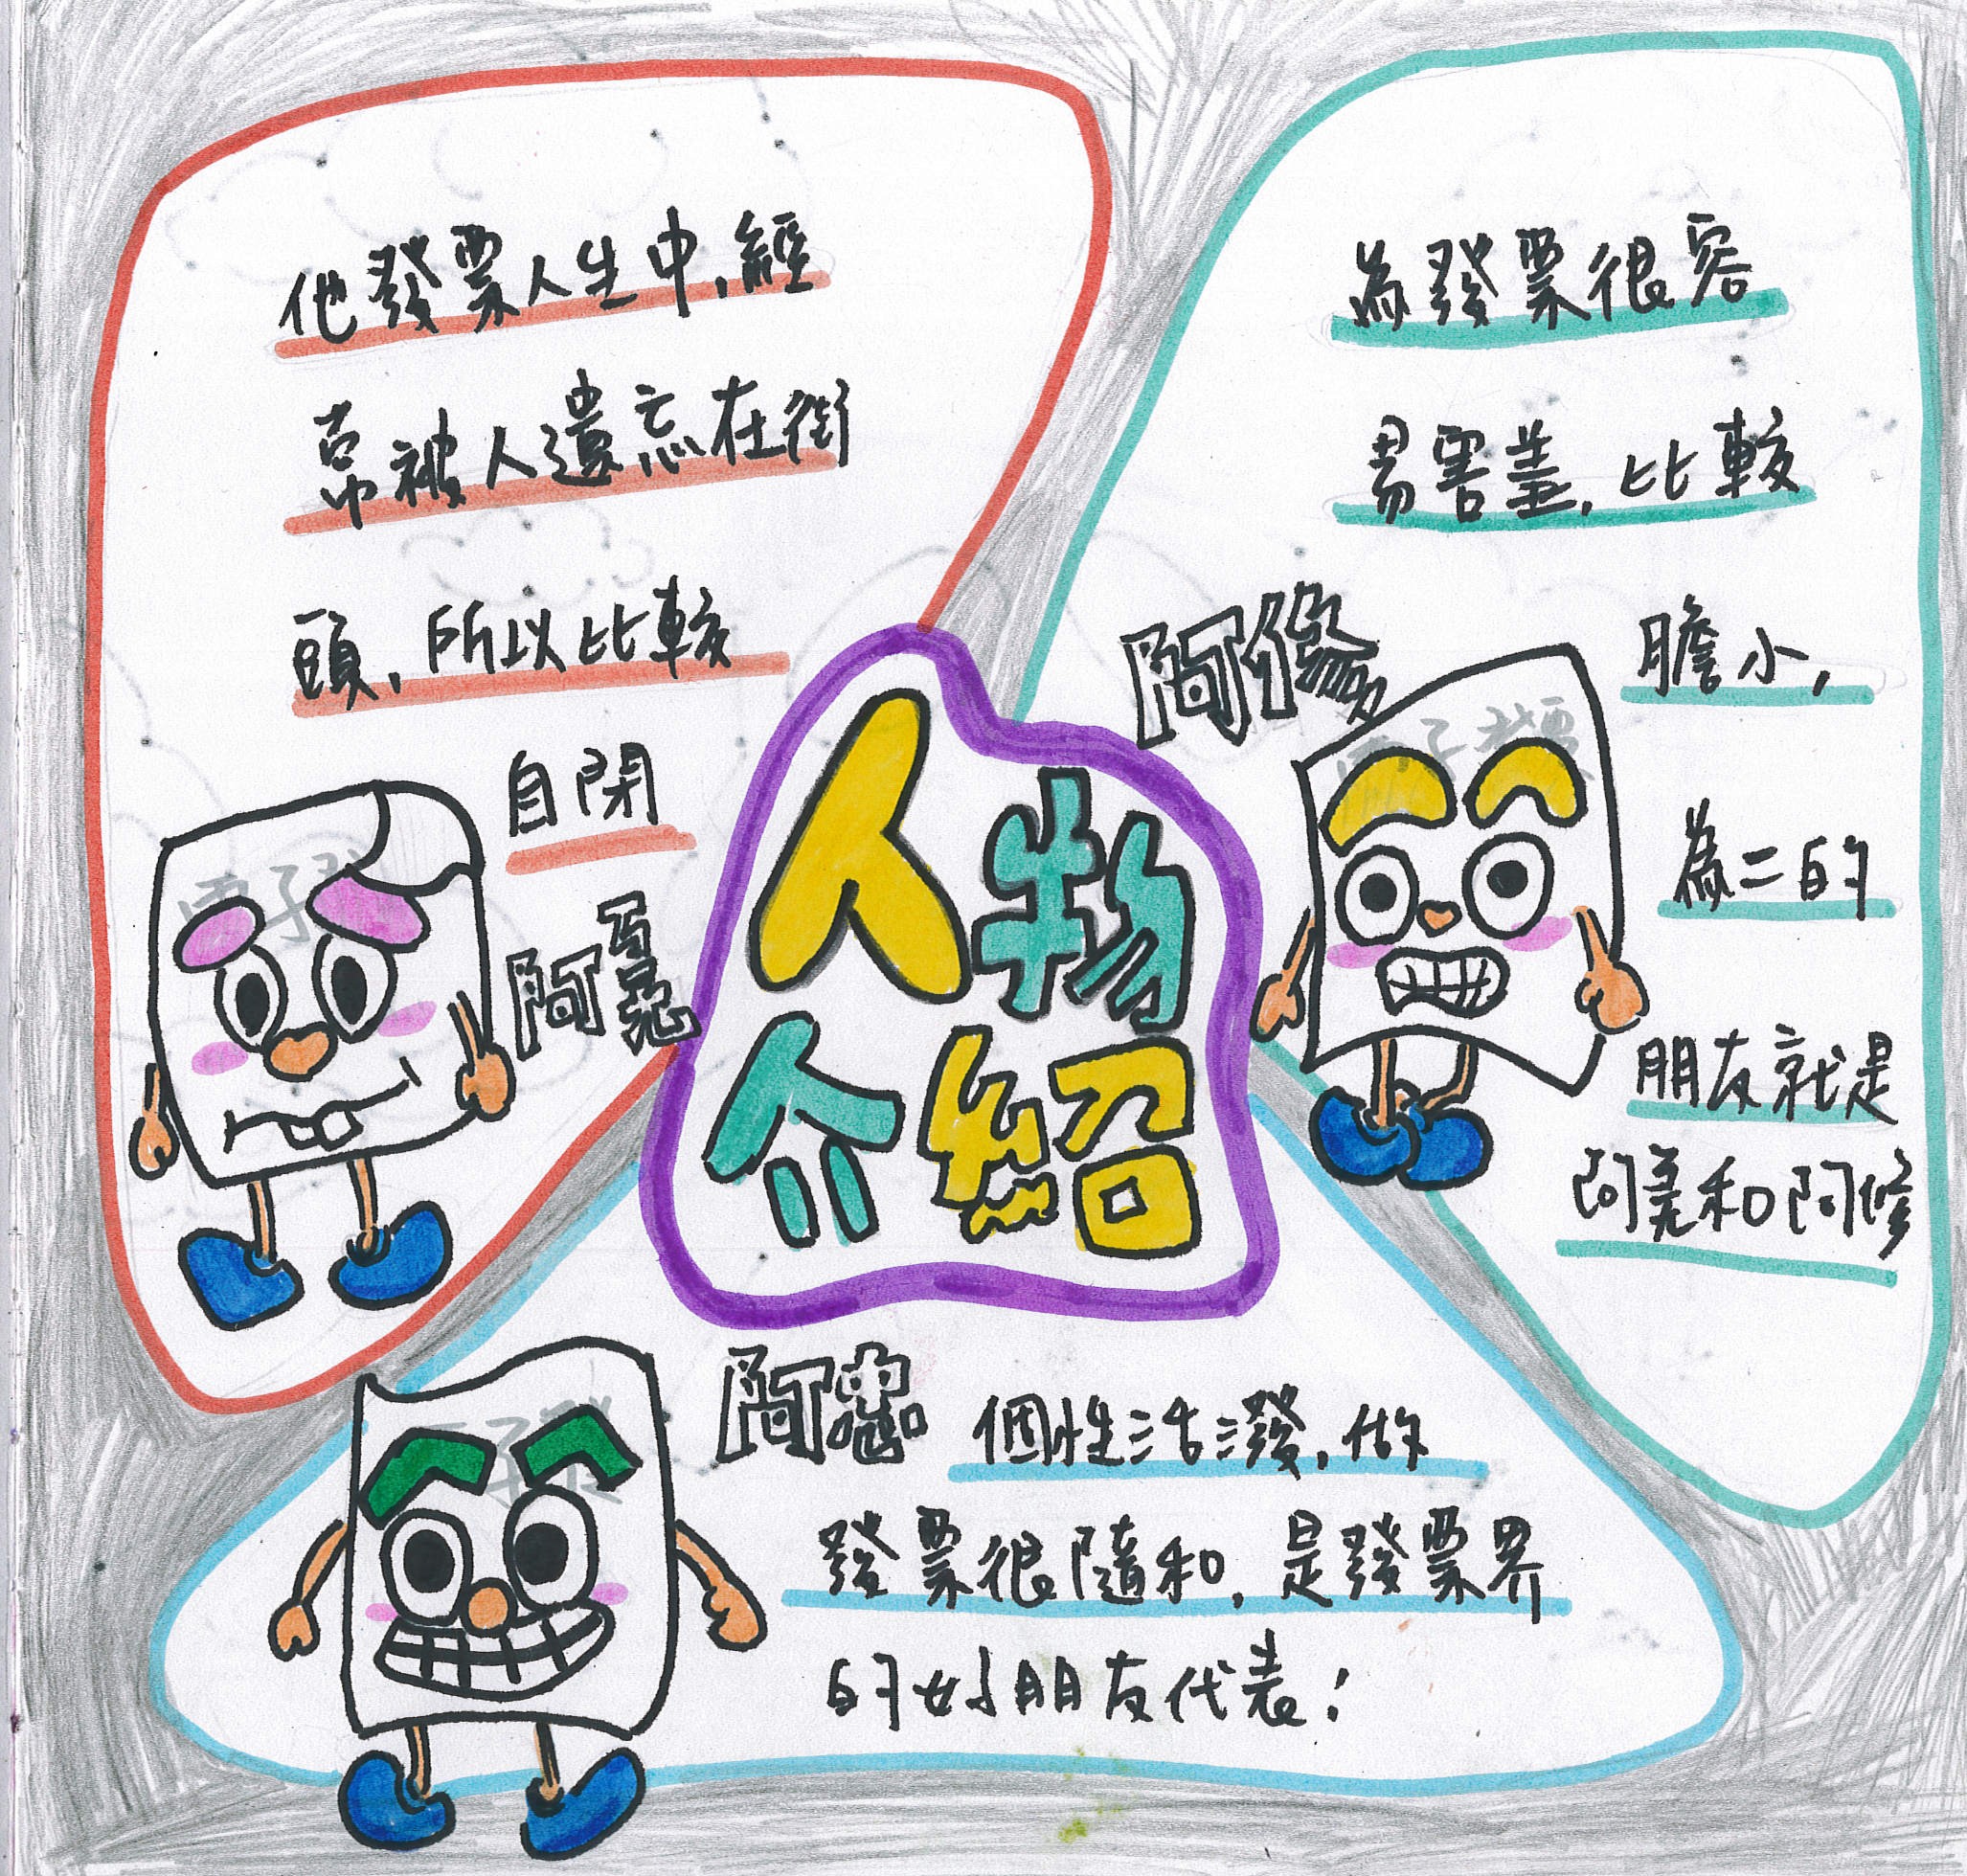 人物
介紹
他發票人生中,經
常被人遺忘在街
頭,所以比較
自閉
阿
電子發
為發票很容
易害羞,比較
膽小,
為二的
朋友就是
阿 和阿修
阿修
電子發票
阿
個性活潑,做
發票很隨和,是發票界
的好朋友代表!
子發